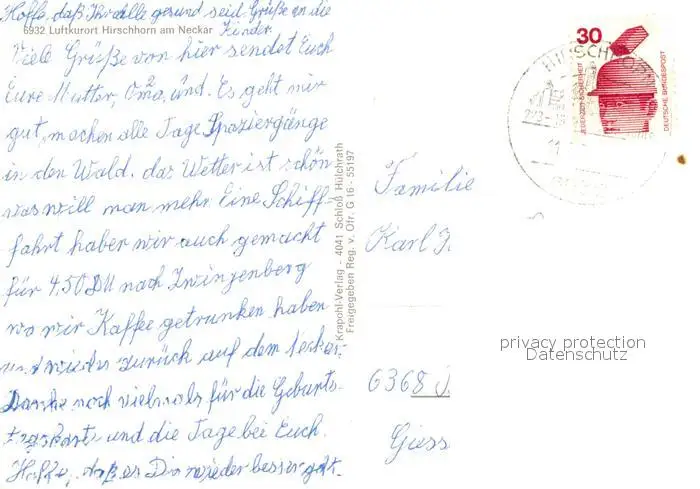 Hoffe, daß Ihr alle gesund seid. Grüße an die
Kinder
6932 Luftkurort Hirschhorn am Neckar
Viele Grüße von hier sendet Euch
Eure Mutter, Oma, und. Es geht mir
gut, machen alle Tage Spaziergänge
in den Wald. das Wetter ist schön
was will man mehr. Eine Schiff-
fahrt haben wir auch gemacht
für 4.50 DM nach Zwingenberg
wo wir Kaffee getrunken haben
und wieder zurück auf dem Neckar.
Danke noch vielmals für die Geburts-
und die Tage bei Euch.
Hoffe, daß es Dir wieder besser geht.
Krapohl-Verlag - 4041 Schloß Hülchrath
Freigegeben Reg. v. Ofr. G 16 - 55197
30
JEDERZEIT SICHERHEIT
DEUTSCHE BUNDESPOST
HIRSCHHORN
11
Familie
Karl
6368
Giess
privacy protection
Datenschutz